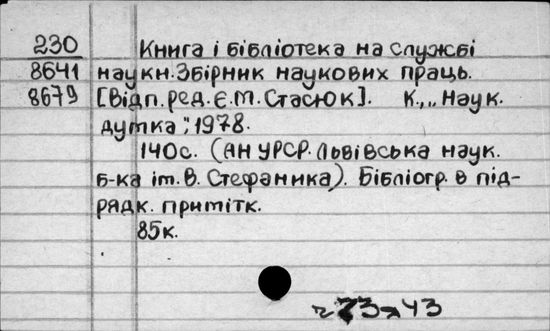 230 Книга і бібліотека на службі
8641 науки. Збірник наукових праць.
8679 [Відп. ред. Є. М. Стасюк]. К., „Наук.
думка", 1978.
140с. (АН УРСР. Львівська наук.
б-ка ім. В. Стефаника). Бібліогр. в під-
рядк. примітк.
85к.